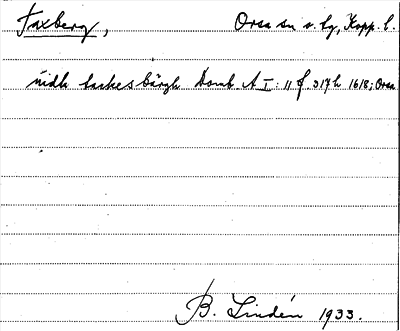 Taxberg, Orsa sn o. tg, Kopp. l.
nidh taxkes bärgh Domb. A I: 11 f. 317 h 1618; Orsa
B. Lindén 1933.